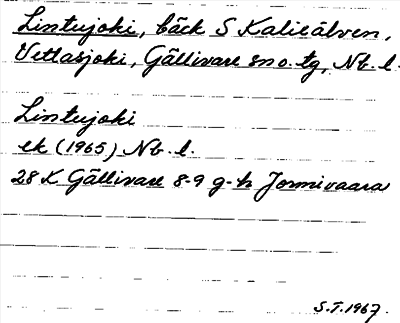 Lintujoki, bäck S Kalixälven,
Vettasjoki, Gällivare sn o. tg, Nb. l.
Lintujoki
ek (1965) Nb. l.
28 K Gällivare 8-9 g-h Jormivaara
S.T. 1967.